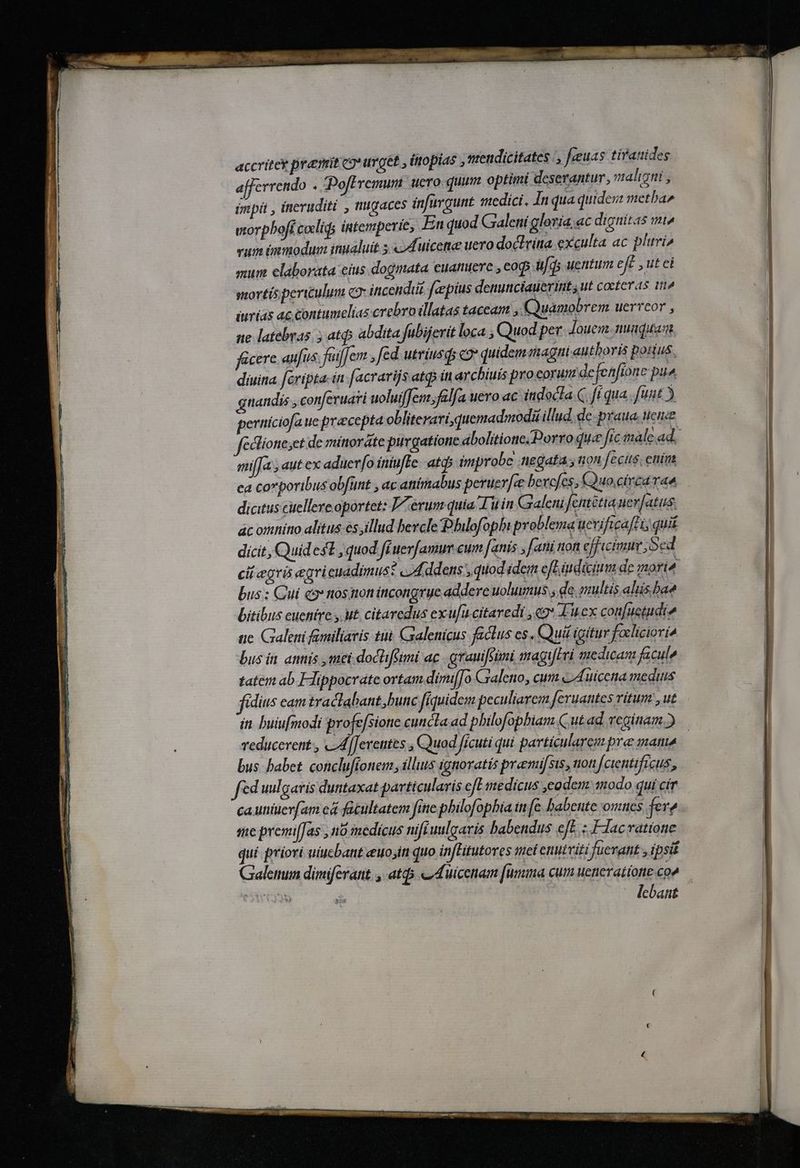 accriter præmit & urget, inopias, mendicitates, sæuas tiranides
afferrendo. Postremum uero quum optimi deserantur, maligni,
impii, ineruditi, nugaces insurgunt medici. In qua quidem metha-
morphosi cœliq; intemperie, En quod Galeni gloria, ac dignitas mi-
rum immodum inualuit; Auicenæ uero doctrina exculta ac pluri-
mum elaborata eius dogmata euanuere, eoq; usq; uentum est, ut ei
mortis periculum & incendiū sæpius denunciauerint, ut cœteras in-
iurias ac contumelias crebro illatas taceam, Quamobrem uerreor,
ne latebras, atq; abdita subijerit loca, Quod per Iouem nunquam
facere ausus fuissem, sed utriusq; & quidem magni authoris potius
diuina scripta in sacrarijs atq; in archiuis pro eorum defensione pu-
gnandis, conseruari uoluissem, falsa uero ac indocta (si qua sunt)
perniciosa ue præcepta obliterari, quemadmodū illud de praua uenæ
sectione, et de minorāte purgatione abolitione. Porro quæ sic male ad
missa, aut ex aduerso iniuste atq; improbe negata, non secus enim
ea corporibus obsunt, ac animabus peruersæ herefes, Quo circa ra-
dicitus euellere oportet: Verum quia Tu in Galeni sentētia uersatus
ac omnino alitus es, illud hercle Philosophi problema uerificasti, quū
dicit, Quid est, quod si uersamur cum sanis, sani non efficimur, Sed
cū ægris ægri euadimus? Addens, quod idem est iudicium de morie
bus: Cui & nos non incongrue addere uoluimus, de multis aliis ha-
bitibus euenire, ut citaredus ex usu citaredi, & Tu ex consuetudi-
ne Galeni familiaris tui Galenicus factus es. Quū igitur fœliciori-
bus in annis, mei doctissimi ac grauissimi magistri medicam facul-
tatem ab Hippocrate ortam dimisso Galeno, cum Auicena medius
fidius eam tractabant, hunc siquidem peculiarem seruantes ritum, ut
in huiusmodi professione cuncta ad philosophiam (ut ad reginam)
reducerent, Asserentes, Quod sicuti qui particularem præ mani-
bus habet conclusionem, illius ignoratis præmissis, non scientificus,
sed uulgaris duntaxat particularis est medicus, eodem modo qui cir
ca uniuersam eā facultatem sine philosophia in se habente omnes fer-
me premissas, nō medicus nisi uulgaris habendus est: Hac ratione
qui priori uiuebant æuo, in quo institutores mei enutriti fuerant, ipsū
Galenum dimiserant, atq; Auicenam summa cum ueneratione co-
lebant